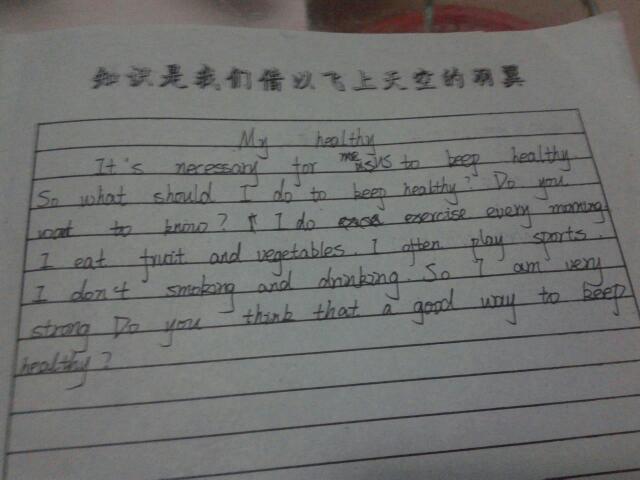 知识是我们借以飞上天空的羽翼
My healthy
It's necessary for me us to keep healthy.
So what should I do to keep healthy? Do you
want to know? I do exercise every morning.
I eat fruit and vegetables. I often play sports.
I don't smoking and drinking. So I am very
strong Do you think that a good way to keep
healthy?